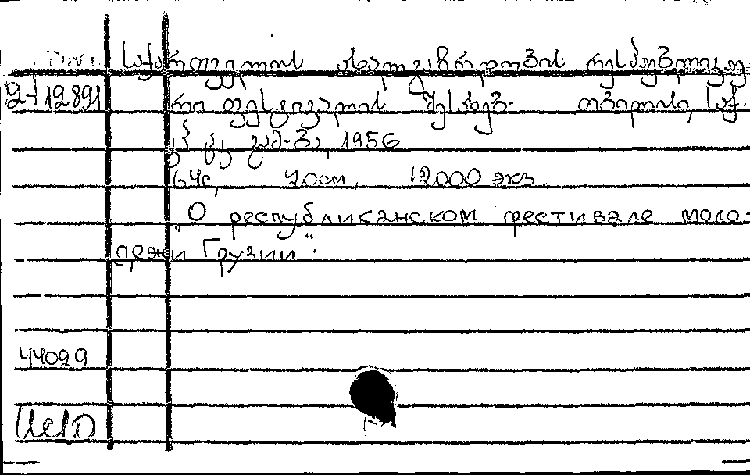 საქართველოს ახალგაზრდობის რესპუბლიკუ-
რი ფესტივალის შესახებ. თბილისი, საქ.
კპ ცკ გამ-ბა, 1956
64с, 12000 экз
"О республиканском фестивале моло-
дежи Грузии".
44029